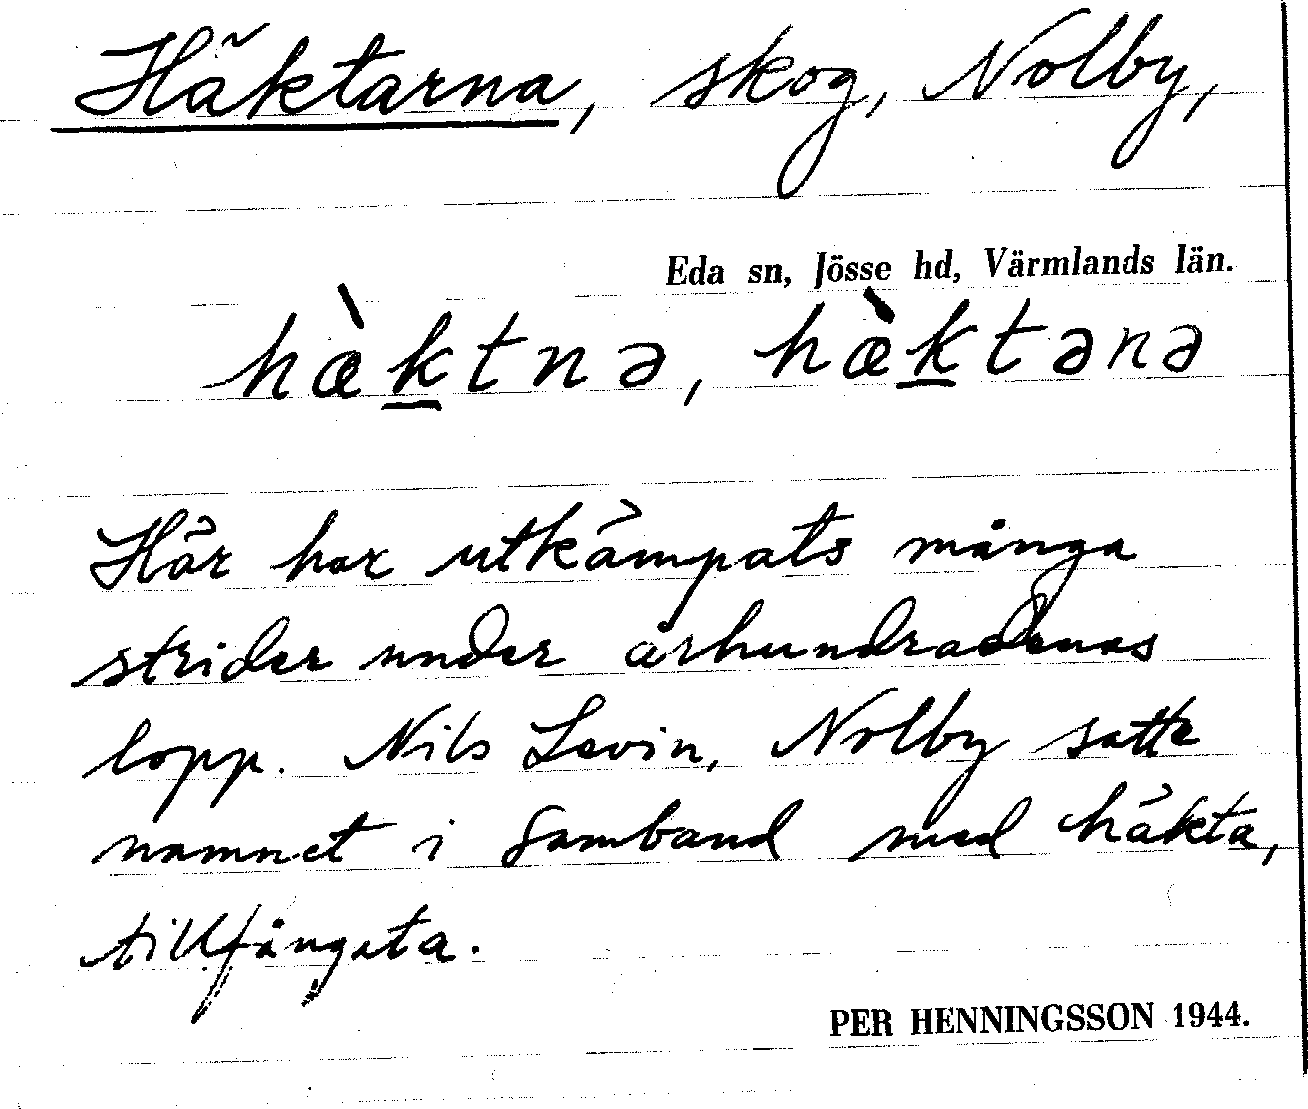 Häktarna, skog, Nolby,
Eda sn, Jösse hd, Värmlands län.
hæ̀k̲tnə, hæ̀k̲tənə
Här har utkämpats många
strider under århundradenas
lopp. Nils Levin, Nolby satte
namnet i samband med häkta,
tillfångata.
PER HENNINGSSON 1944.